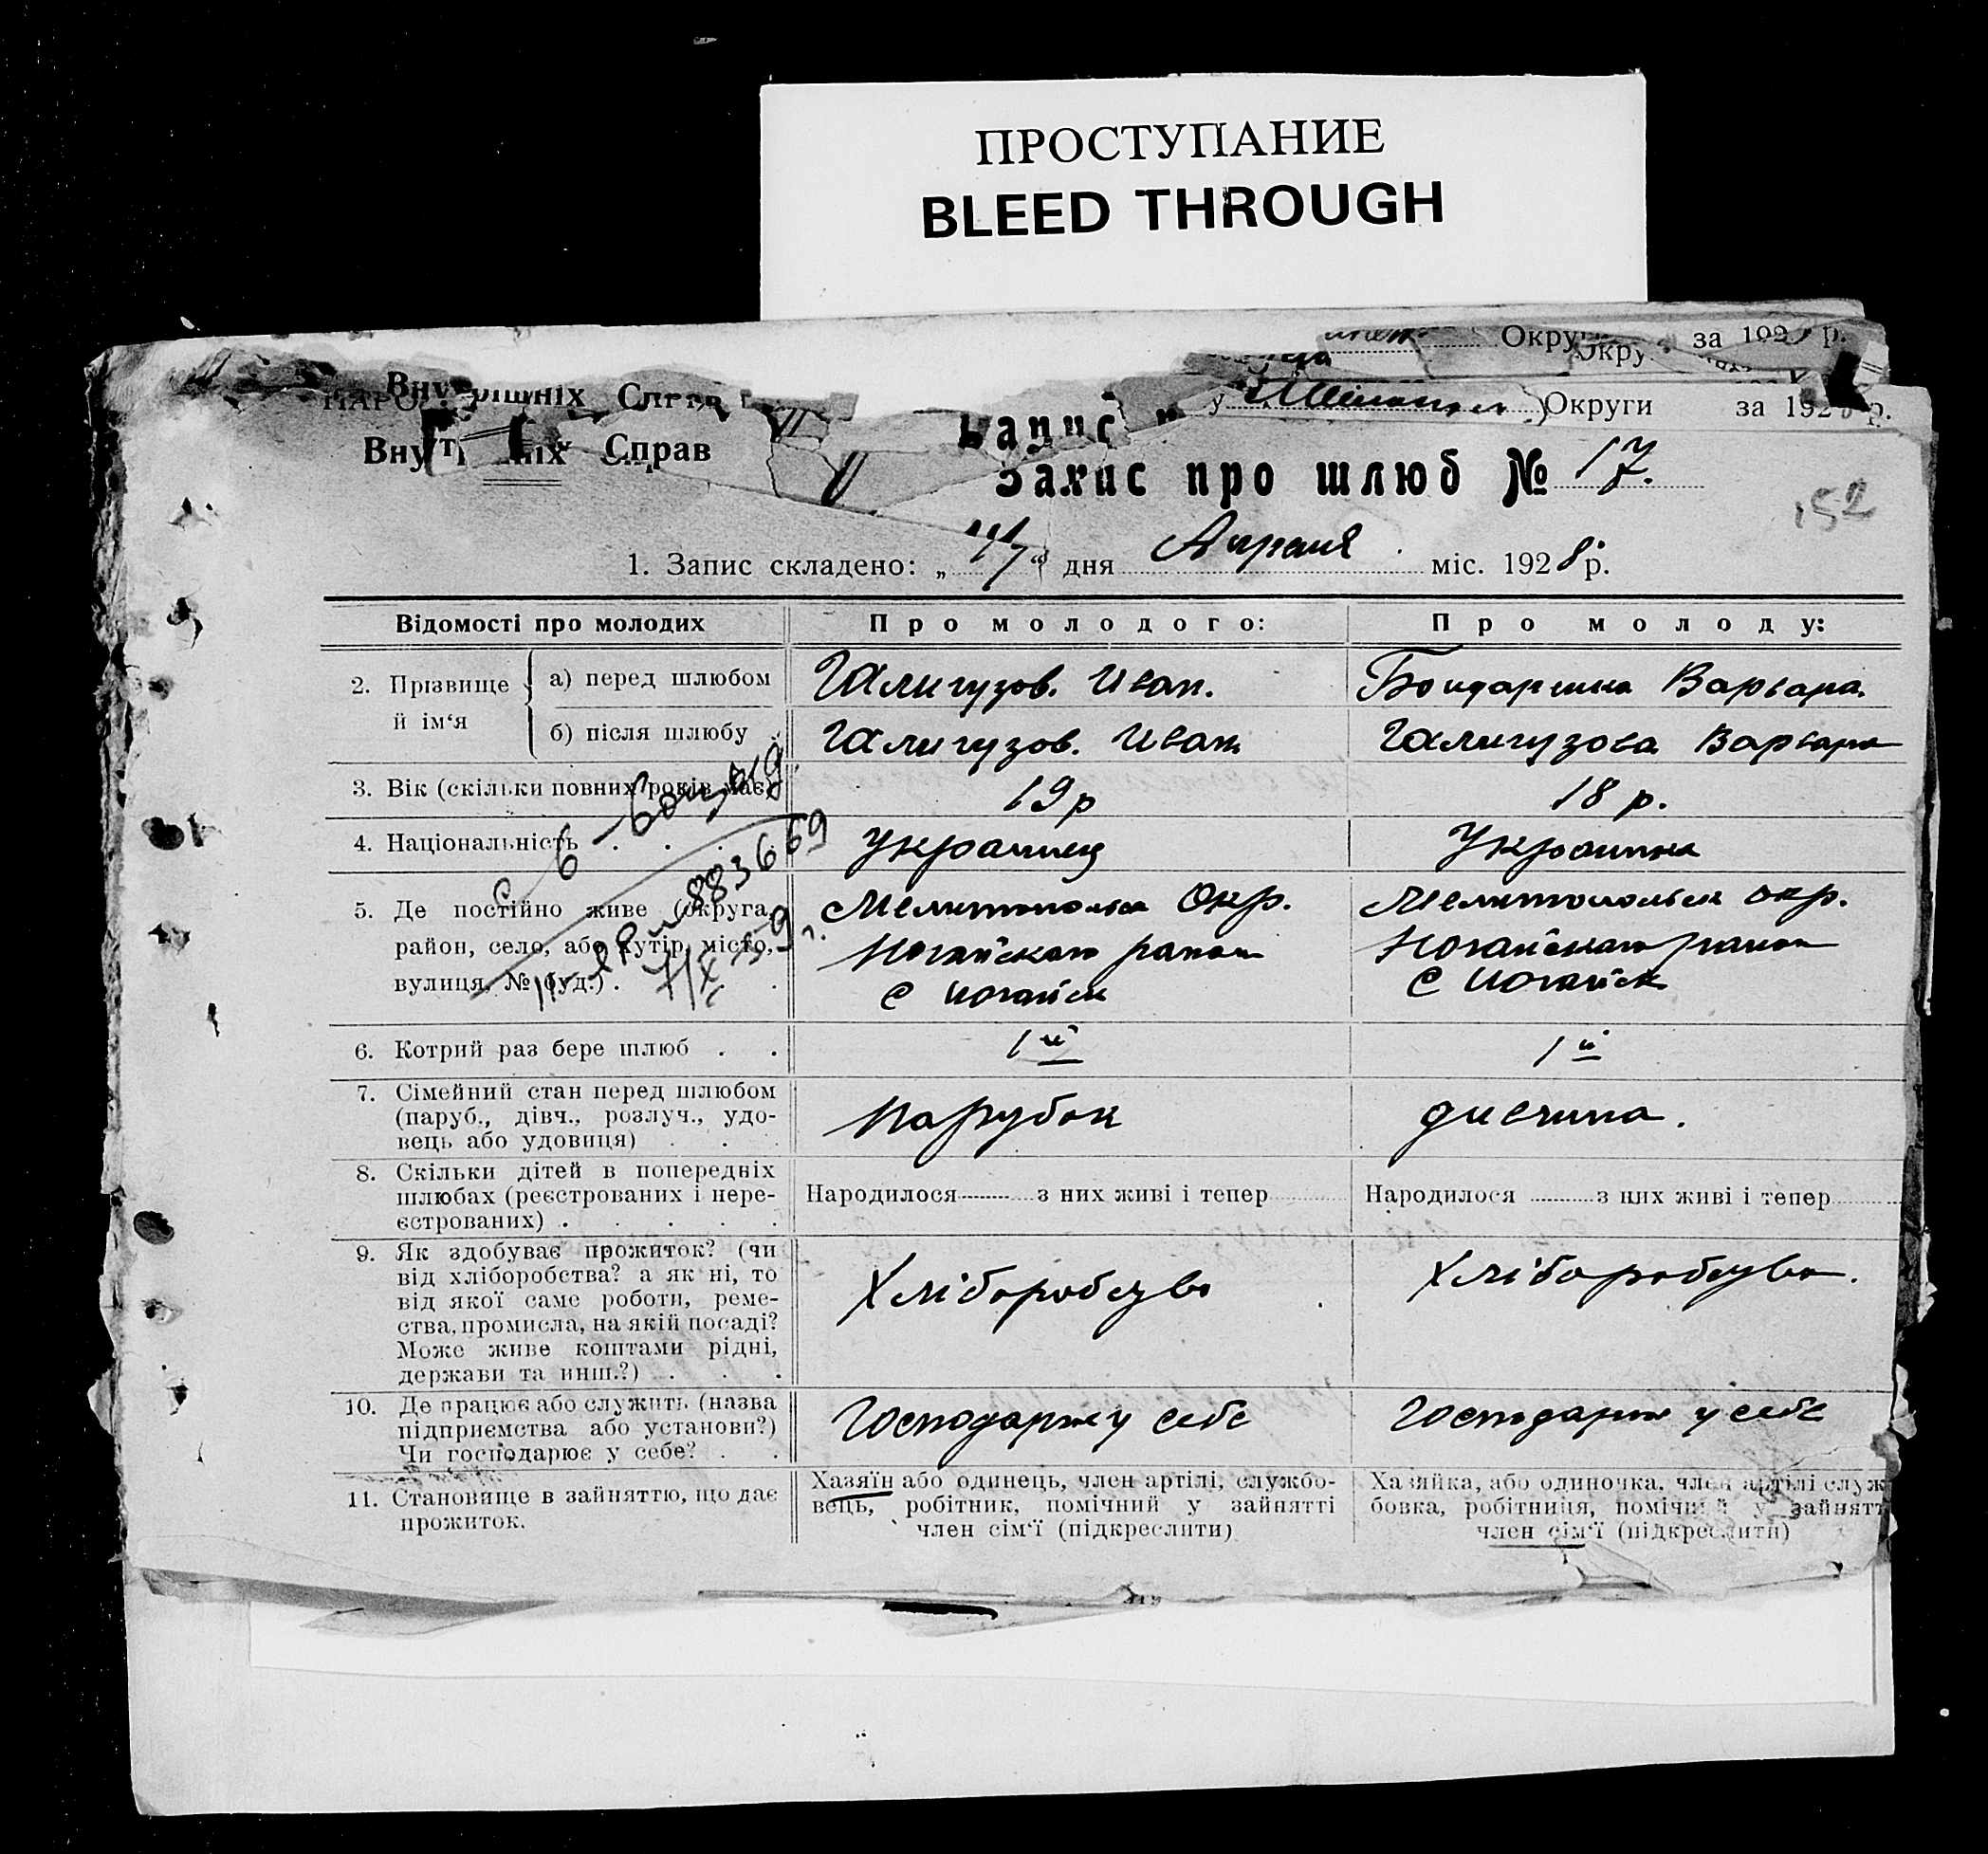 ПРОСТУПАНИЕ
BLEED THROUGH
Округи за 192 р.
Округи за 1928 р.
Внутрішніх Справ
Внутрішніх Справ
Запис
Запис про шлюб № 17.
152
1. Запис складено: „17“ дня Апреля міс. 1928 р.
Відомості про молодих Про молодого: Про молоду:
2. Прізвище й ім‘я
а) перед шлюбом Галигузов. Иван. Бондаренко Варвара.
б) після шлюбу Галигузов. Иван Галигузова Варвара
3. Вік (скільки повних років має) 19 р 18 р.
4. Національність . . . . Украинец Украинка
5. Де постійно живе (округа, район, село, або хутір, місто, вулиця, № буд.) .
Мелитопольск Окр. Ногайскаго район с Ногайск
Мелитопольск окр. Ногайскаго район с Ногайск
883669
6. Котрий раз бере шлюб . . 1й 1й
7. Сімейний стан перед шлюбом
(паруб., дівч., розлуч., удо-
вець або удовиця) . . .
Парубок дивчина.
8. Скільки дітей в попередніх
шлюбах (реєстрованих і нере-
єстрованих) . . . . .
Народилося з них живі і тепер Народилося з них живі і тепер
9. Як здобуває прожиток? (чи
від хліборобства? а як ні, то
від якої саме роботи, реме-
ства, промисла, на якій посаді?
Може живе коштами рідні,
держави та инш.?) . . .
Хліборобство Хліборобство.
10. Де працює або служить (назва
підприємства або установи?)
Чи господарює у себе? . .
Господарює у себе Господарює у себе
11. Становище в зайняттю, що дає
прожиток.
Хазяїн або одинець, член артілі, службо-
вець, робітник, помічний у зайнятті
член сім‘ї (підкреслити)
Хазяйка, або одиночка, член артілі служ
бовка, робітниця, помічний у зайнятт
член сім‘ї (підкреслити)